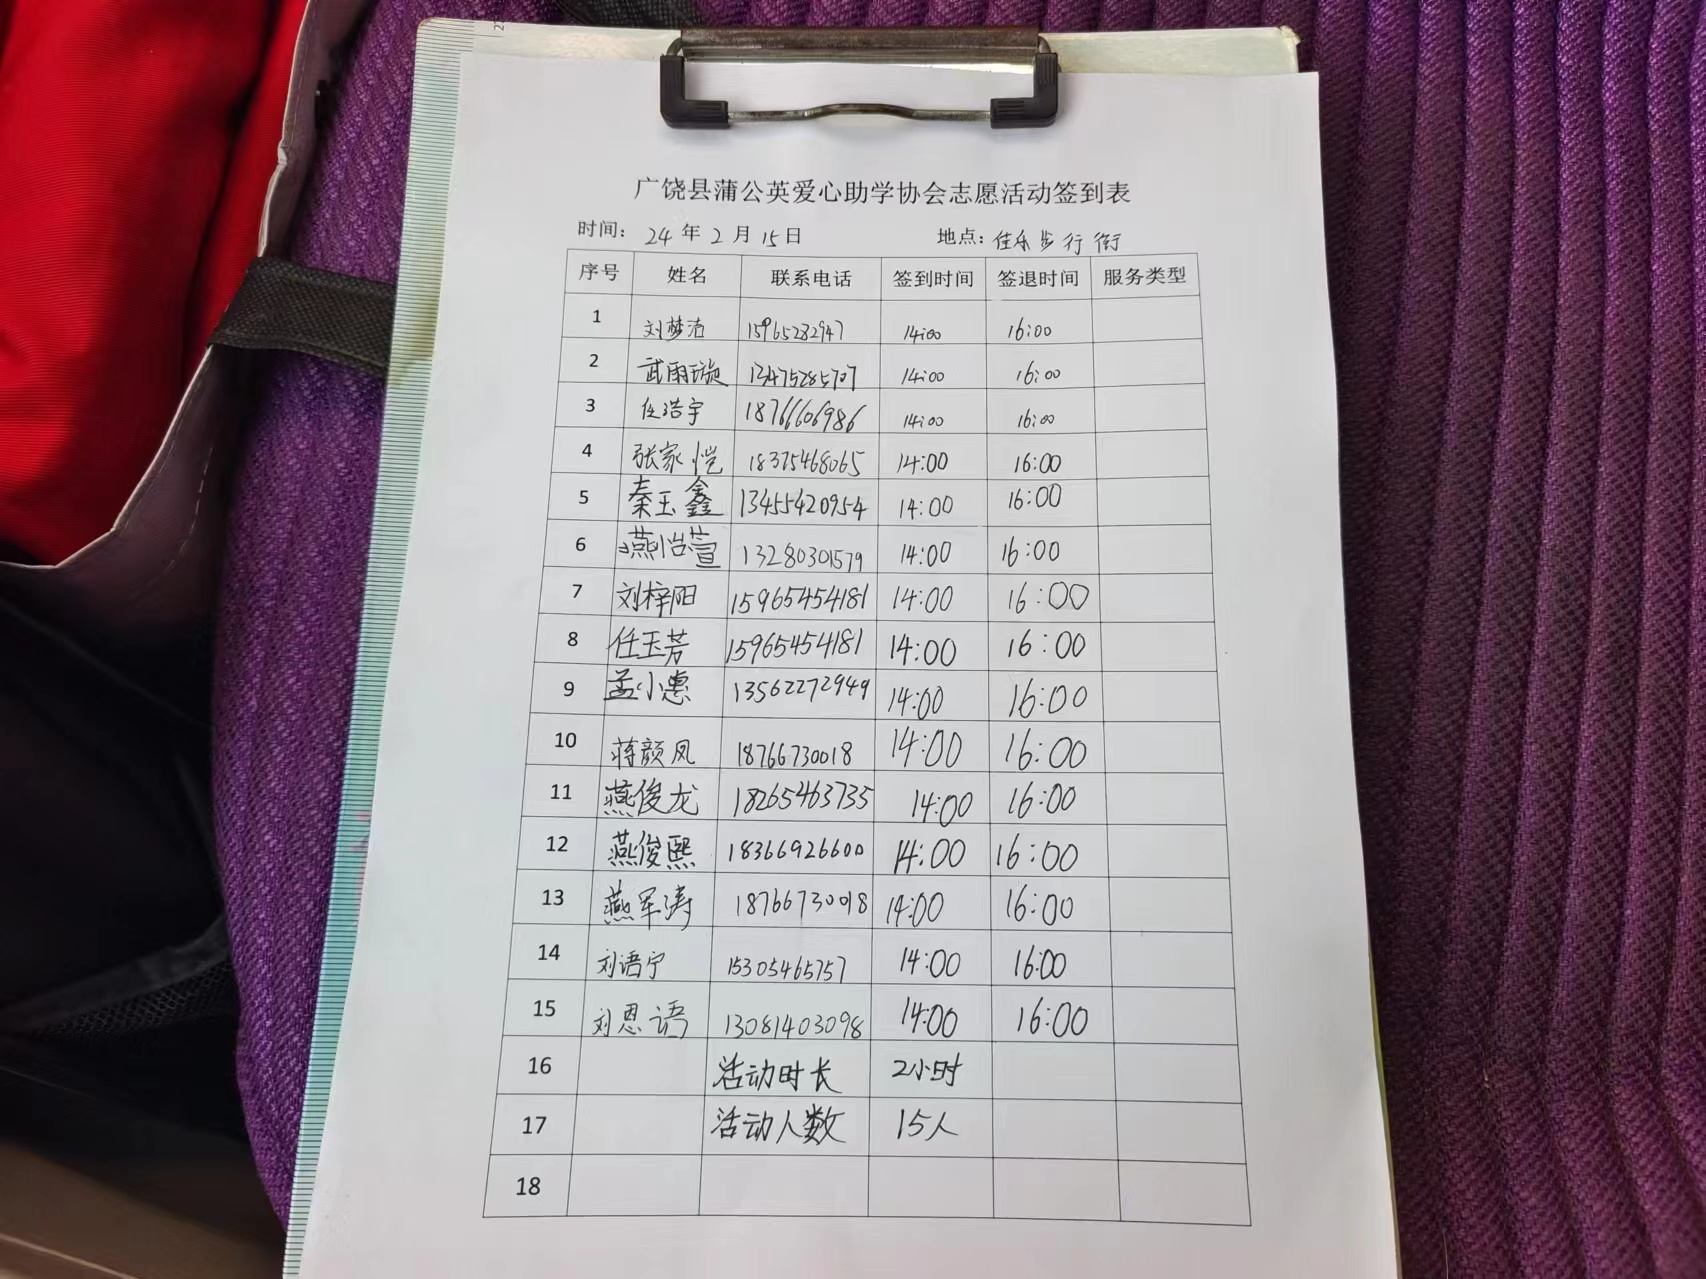 广饶县蒲公英爱心助学协会志愿活动签到表
时间: 24 年 2 月 15 日 地点: 佳乐步行街
序号 姓名 联系电话 签到时间 签退时间 服务类型
1 刘梦洁 15965282947 14:00 16:00
2 武雨璇 13475285707 14:00 16:00
3 任浩宇 18766606986 14:00 16:00
4 张家恺 18375468065 14:00 16:00
5 秦玉鑫 13455420954 14:00 16:00
6 燕怡萱 13280301579 14:00 16:00
7 刘梓阳 15965454181 14:00 16:00
8 任玉芳 15965454181 14:00 16:00
9 孟小惠 13562272949 14:00 16:00
10 蒋颜凤 18766730018 14:00 16:00
11 燕俊龙 18265463735 14:00 16:00
12 燕俊熙 18366926600 14:00 16:00
13 燕军涛 18766730018 14:00 16:00
14 刘语宁 15305465757 14:00 16:00
15 刘恩语 13081403098 14:00 16:00
16 活动时长 2小时
17 活动人数 15人
18